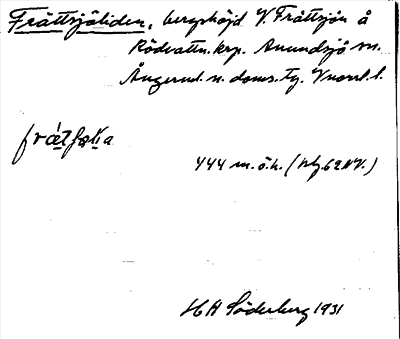 Frättsjöliden, bergshöjd V. Frättsjön å
Rödvattn. krp. Anundsjö sn.
Ångerml. n. doms. tg. Vnorrl. l.
444 m. ö. h. (blg. 62 NV.)
H A Söderberg 1931